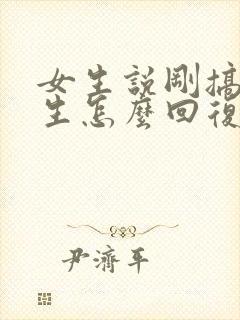 女生説剛搞
生怎麽回復
尹濟平